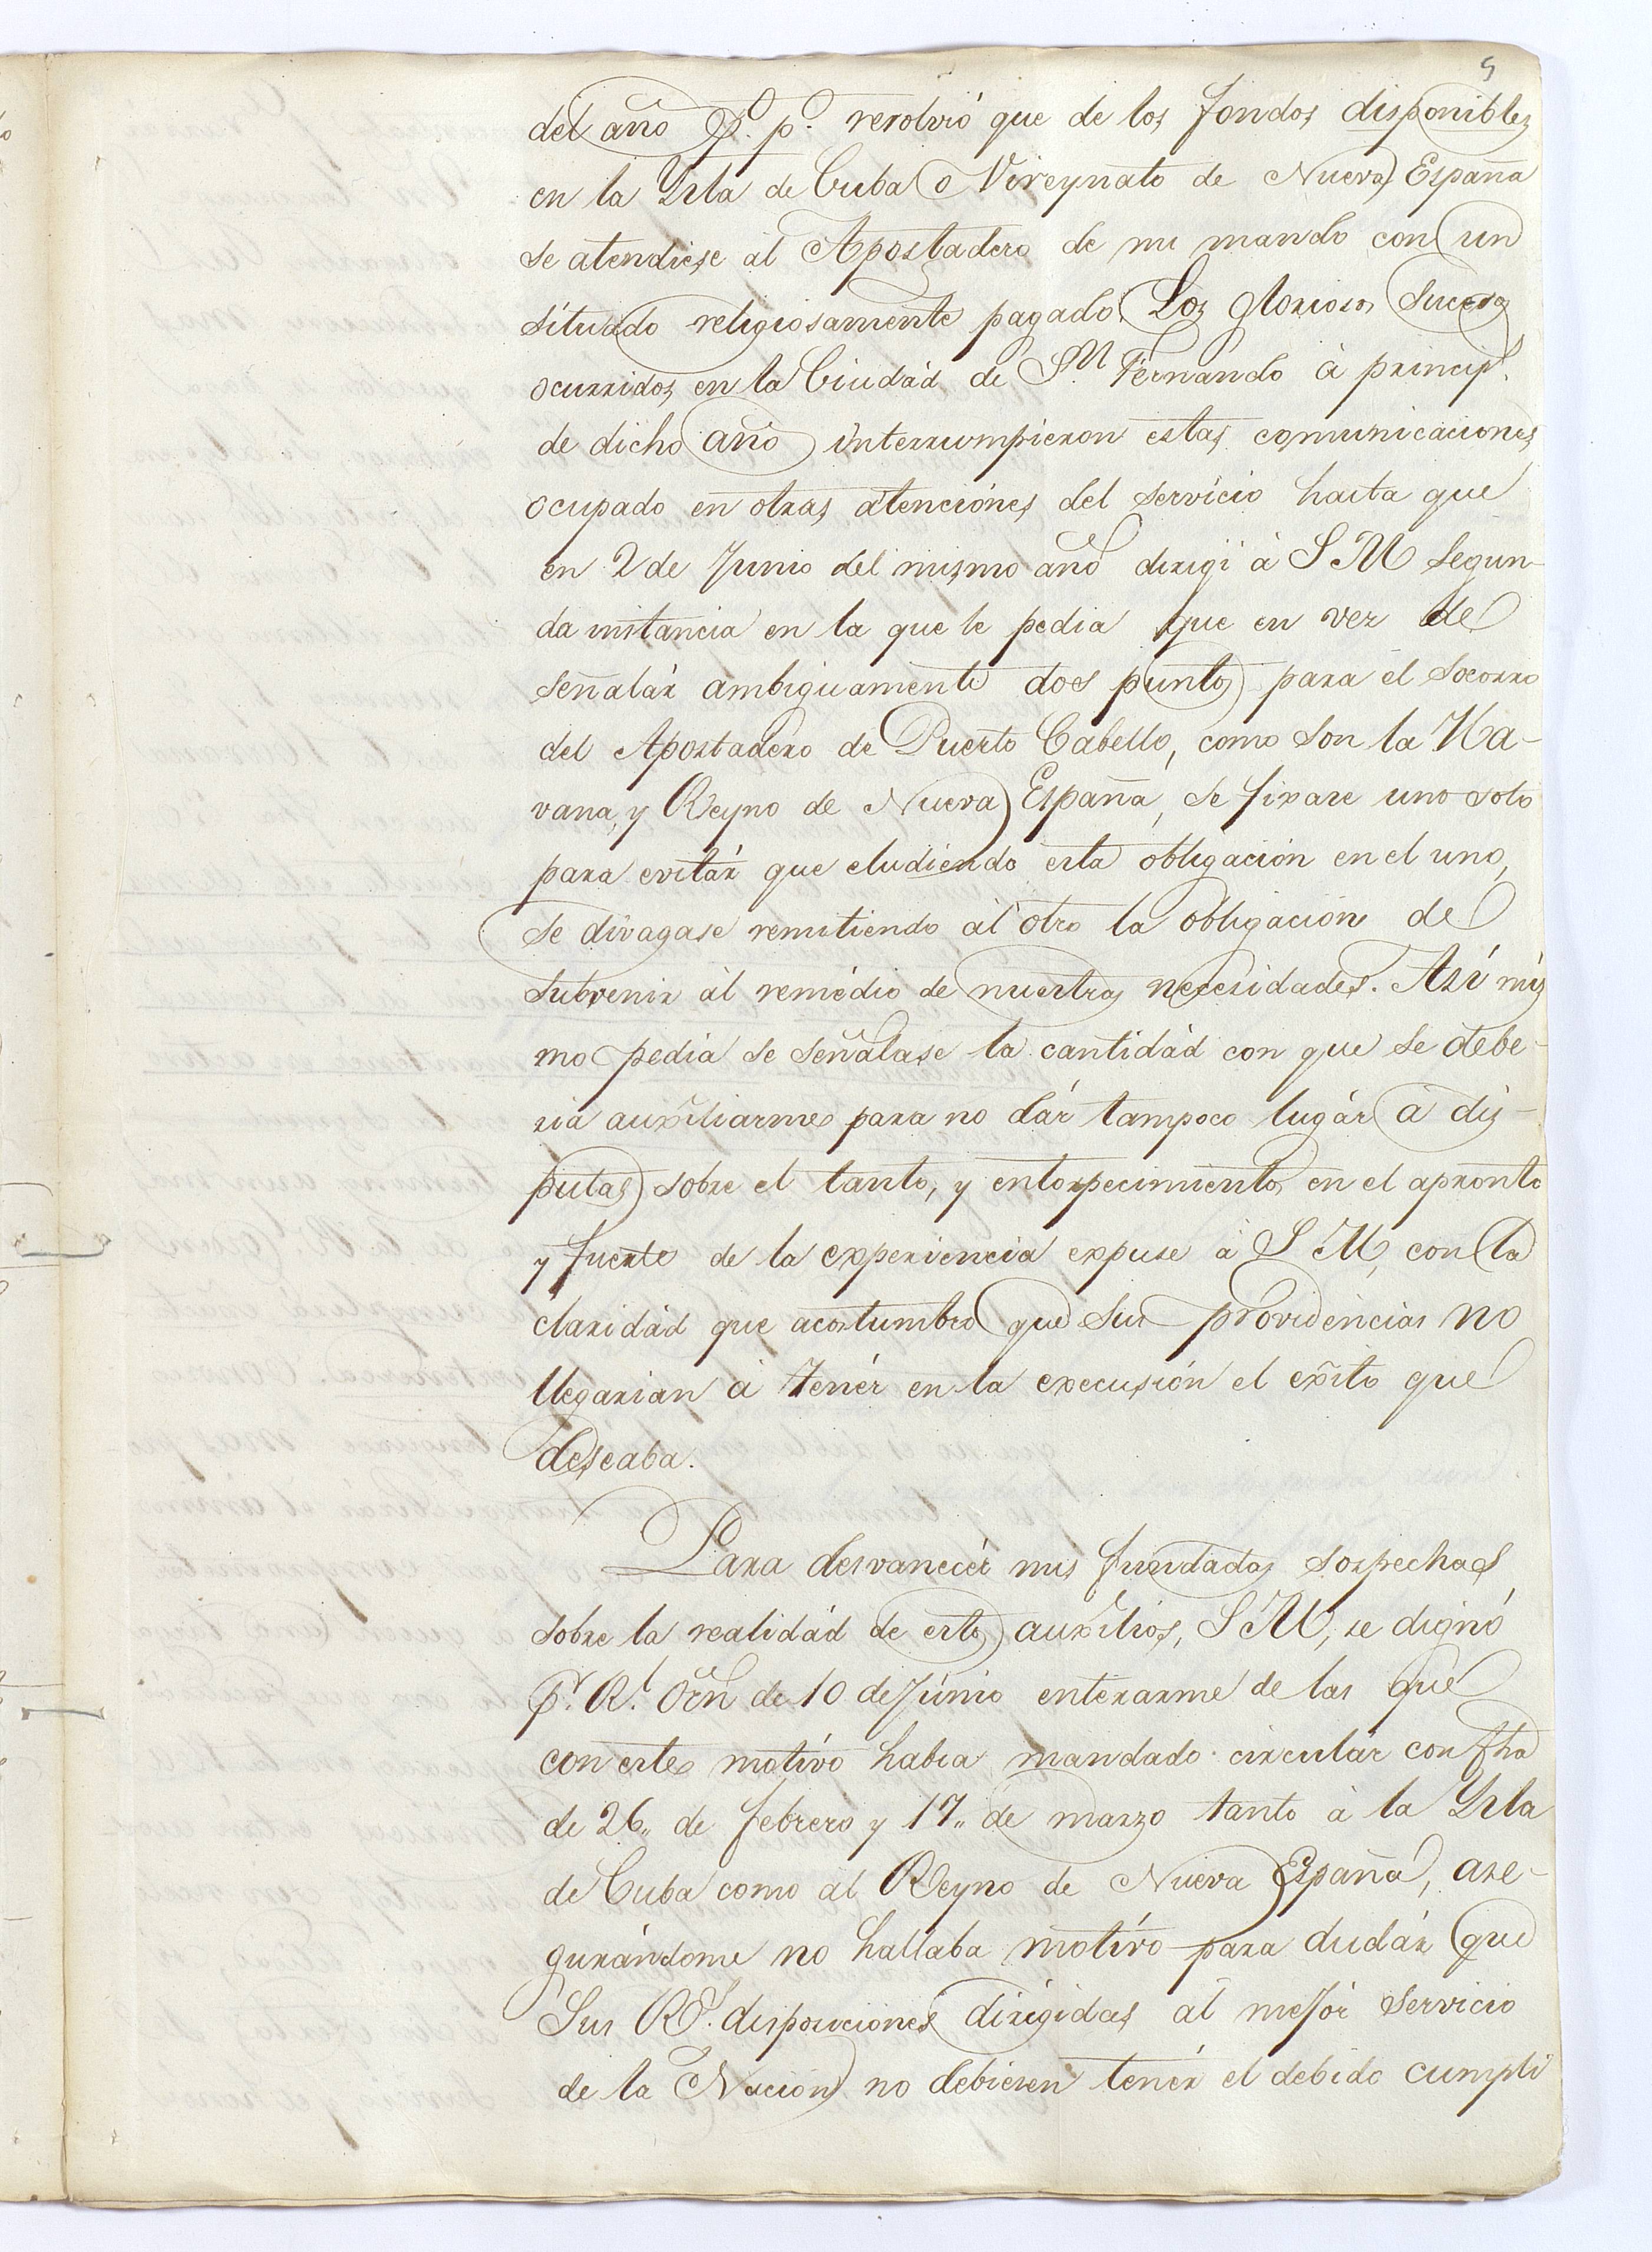 5
del año p.º p.º resolvió que de los fondos disponibles
en la Ysla de Cuba o Vireynato de Nueva España
se atendiese al Apostadero de mi mando con un
situado religiosamente pagado. Los gloriosos sucesos
ocurridos en la Ciudád de S.n Fernando à princip.s
de dicho año interrumpieron estas comunicaciones
ocupado en otras atenciónes del servício hasta que
en 2 de Junio del mismo año dirigí à S M segun-
da instancia en la que le pedia que en vez de
señalár ambiguamente dos puntos para el socorro
del Apostadero de Puerto Cabello, como son la Ha-
vana, y Reyno de Nueva España, se fixase uno solo
para evitár que eludiendo esta obligación en el uno,
se divagase remitiendo al otro la obligación de
subvenir al remédio de nuestras necesidades. Así mis
mo pedia se señalase la cantidád con que se debe-
ria auxîliarme para no dár tampoco lugár à dis-
putas sobre el tanto, y entorpecimientos en el apronto
y fuerte de la experiencia expuse à S M, con la
claridád que acostumbro que sus providéncias no
llegarian à tenér en la execusión el exîto que
deseaba.
Para desvanecér mis fundadas sospechas
sobre la realidád de estos auxîlios, S M, se dignó
p.r R.l Orñ de 10 de Júnio enterarme de las que
con este motívo habia mandado circulár con fha
de 26,, de febrero y 17,, de marzo tanto à la Ysla
de Cuba como al Reyno de Nueva España, ase-
gurándome no hallaba motívo para dudár que
Sus R.s disposiciones dirigidas al mejór servicio
de la Nación no debiesen tenér el debido cumpli